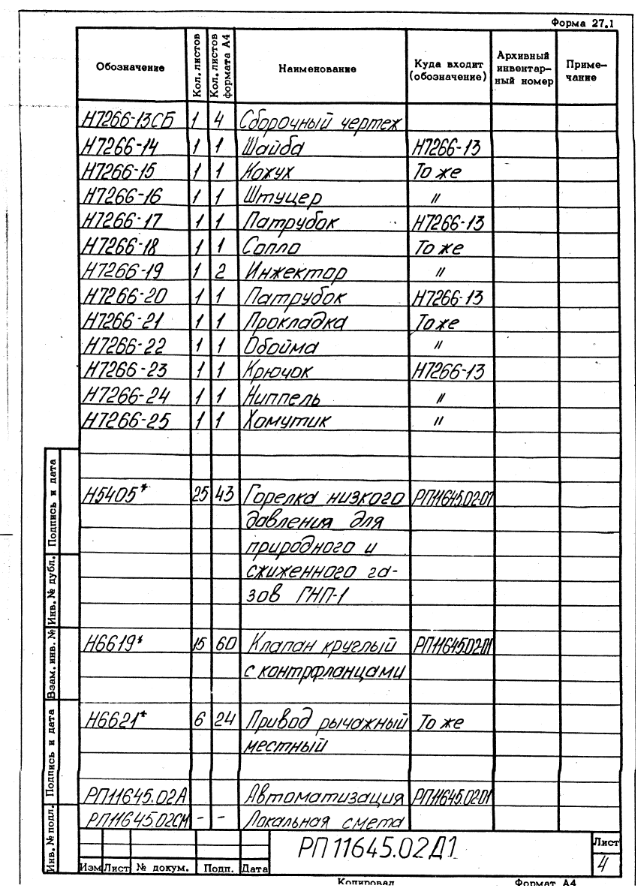 Форма 27.1
Обозначение Кол. листов Кол. листов формата А4 Наименование Куда входит (обозначение) Архивный инвентарный номер Примечание
Н7266-13СБ 1 4 Сборочный чертеж
Н7266-14 1 1 Шайба Н7266-13
Н7266-15 1 1 Кожух То же
Н7266-16 1 1 Штуцер "
Н7266-17 1 1 Патрубок Н7266-13
Н7266-18 1 1 Сопло То же
Н7266-19 1 2 Инжектор "
Н7266-20 1 1 Патрубок Н7266-13
Н7266-21 1 1 Прокладка То же
Н7266-22 1 1 Обойма "
Н7266-23 1 1 Крючок Н7266-13
Н7266-24 1 1 Ниппель "
Н7266-25 1 1 Хомутик "
Н5405* 25 43 Горелка низкого РП11645.02Д1
давления для
природного и
сжиженного га-
зов ГНП-1
Н6619* 15 60 Клапан круглый РП11645.02Д1
с контрфланцами
Н6621* 6 24 Привод рычажный То же
местный
РП11645.02А Автоматизация РП11645.02Д1
РП11645.02СМ - - Локальная смета
Инв. № подл. Подпись и дата Взам. инв. № Инв. № дубл. Подпись и дата
РП 11645.02Д1
Лист
4
Изм Лист № докум. Подп. Дата
Копировал Формат А4